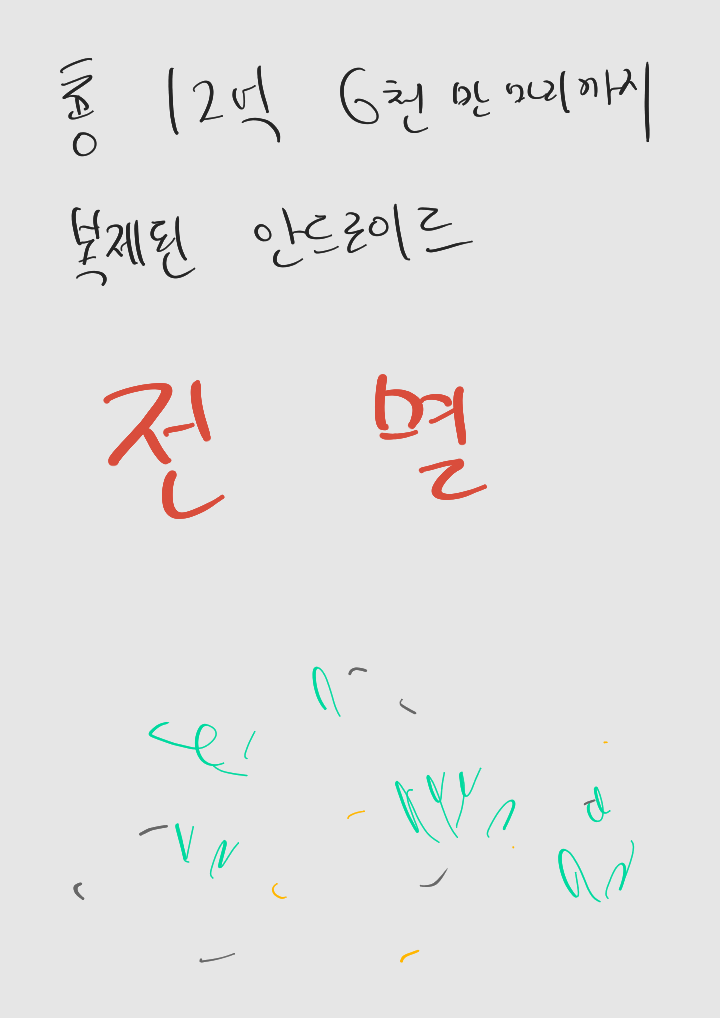 총 12억 6천만 마리까지
복제된 안드로이드
전 멸